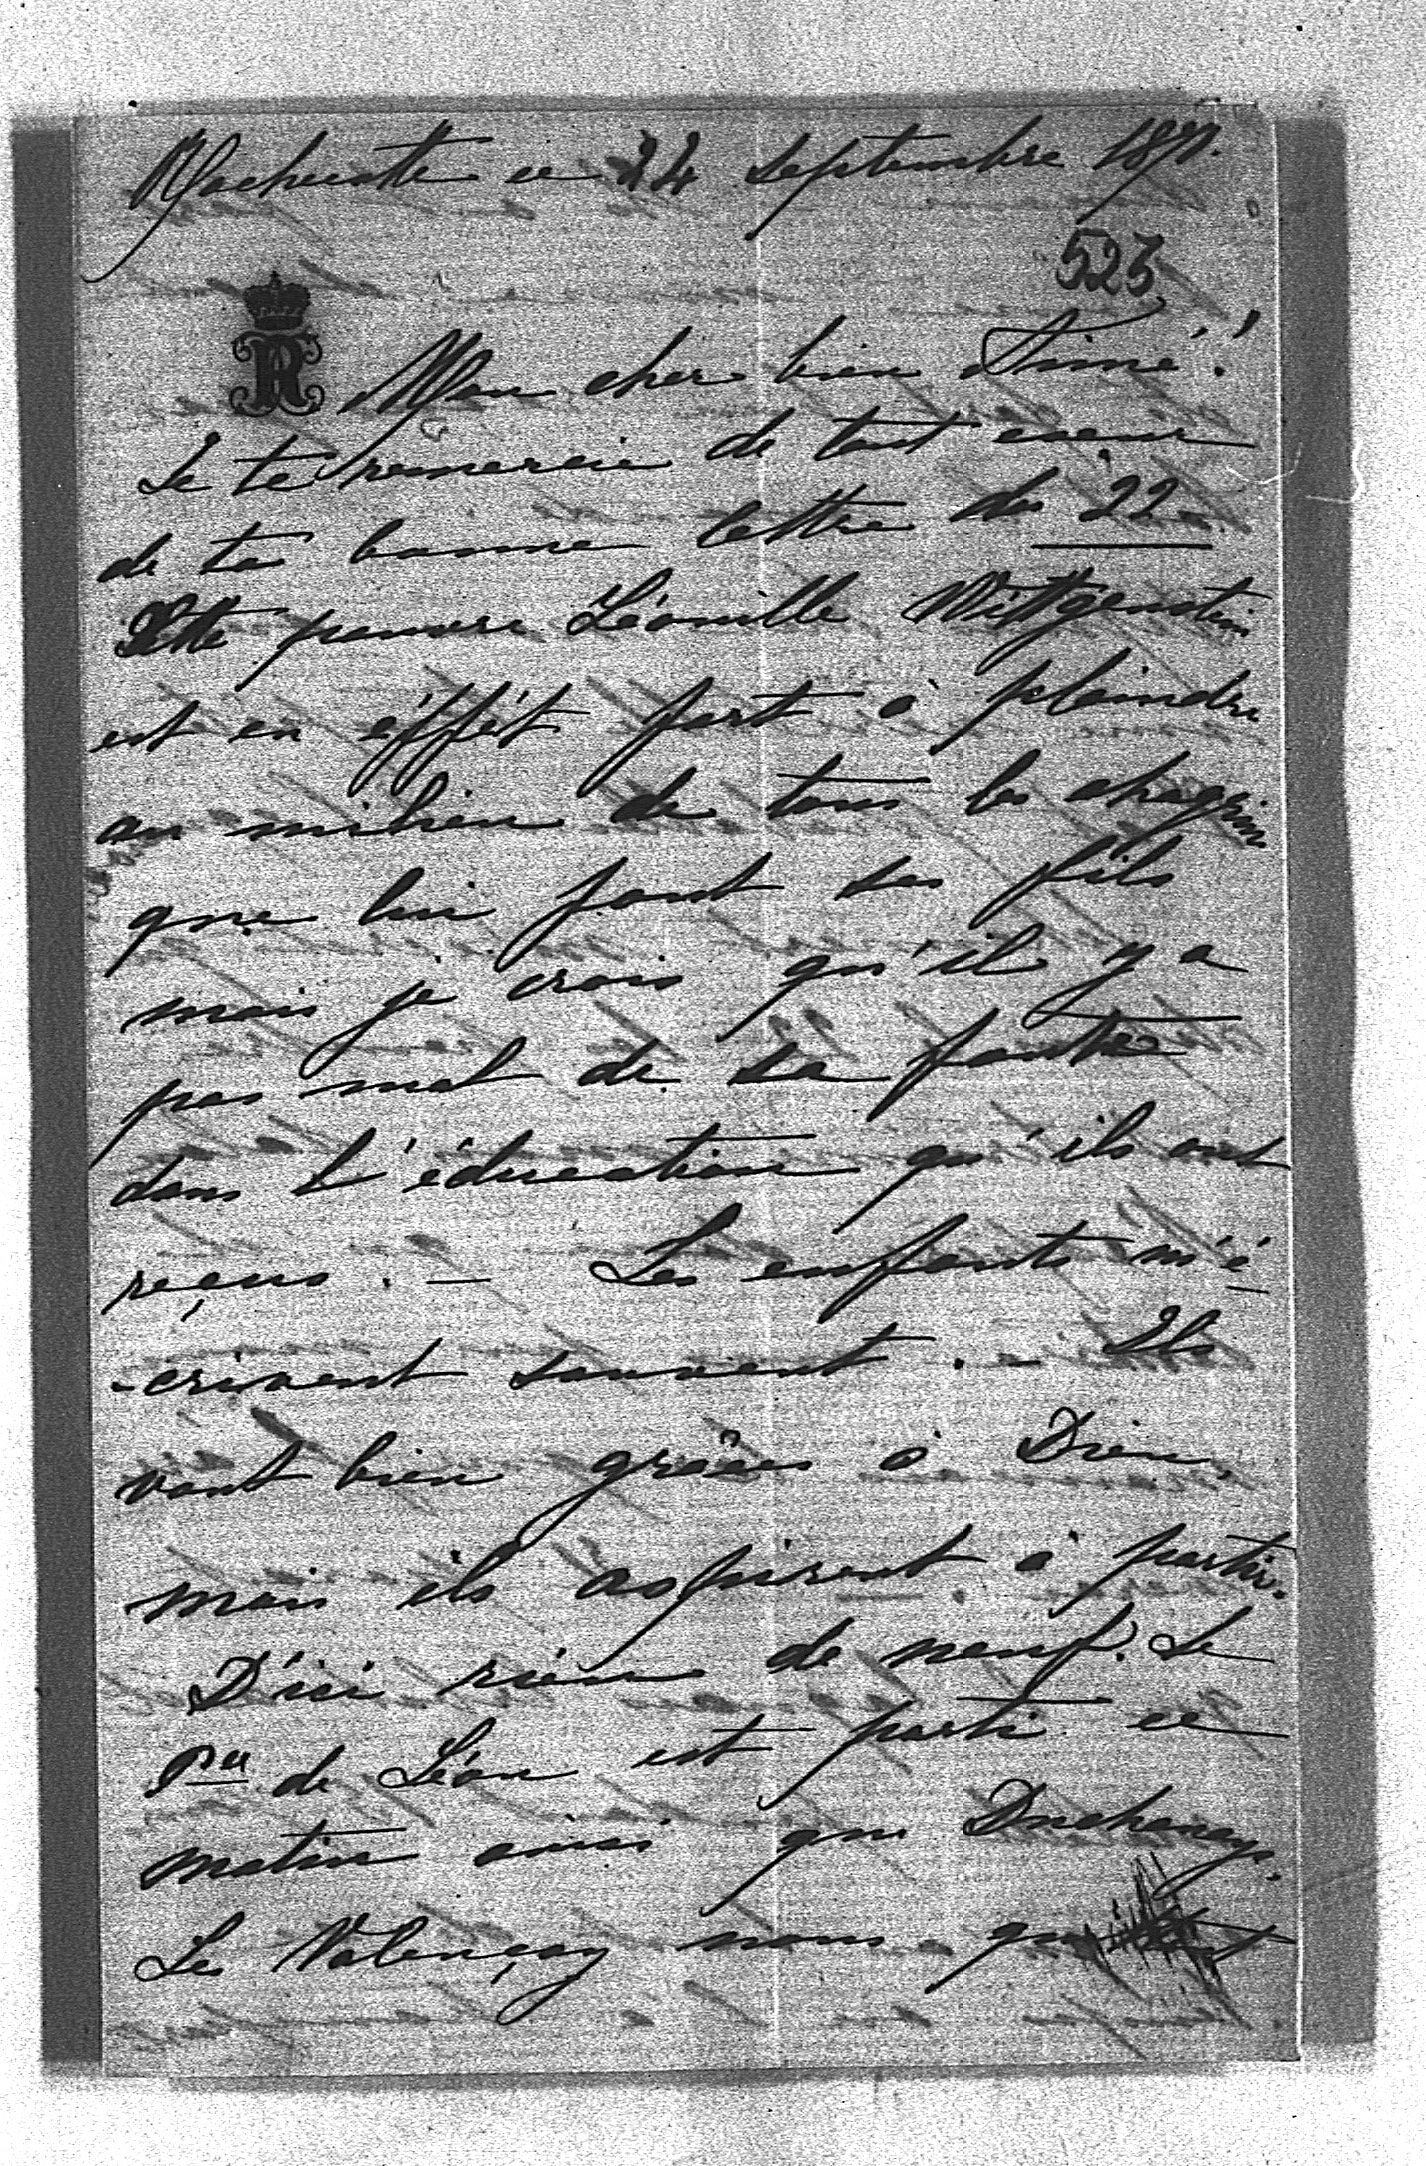 Rochecotte ce 24 septembre 1871.
523
Mon cher bien Aimé!
Je te remercie de tout coeur
de ta bonne lettre du 22.
Cette pauvre Léonille Wittgenstein
est en éffét fort à plaindre
au milieu de tous les chagrins
que lui font ses fils
mais je crois qu'il y a
pas mal de sa faute
dans l'éducation qu'ils ont
reçus. – Les enfants m'é
-crivent souvent. – Ils
vont bien grâces à Dieu,
mais ils aspirent à partir.
D'ici rien de neuf. Le
Pce de Léon est parti ce
matin ainsi que
Les Valençay nous